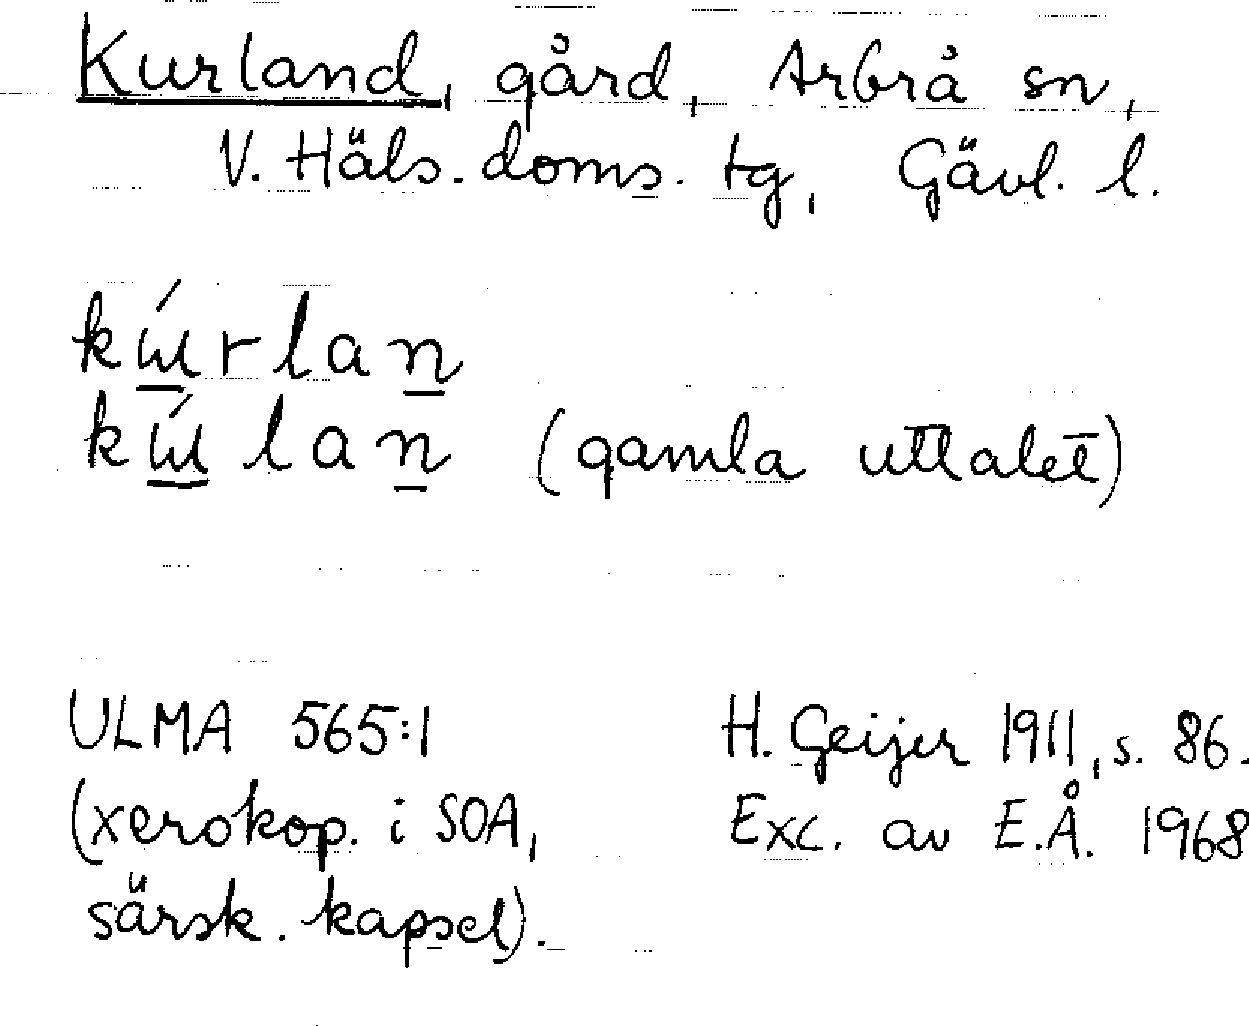 Kurland, gård, Arbrå sn,
V. Häls. doms. tg, Gävl. l.
kɯ́rlan
kɯ́lan (gamla uttalet)
ULMA 565:1
(xerokop. i SOA,
särsk. kapsel).
H. Geijer 1911, s. 86.
Exc. av E.Å. 1968